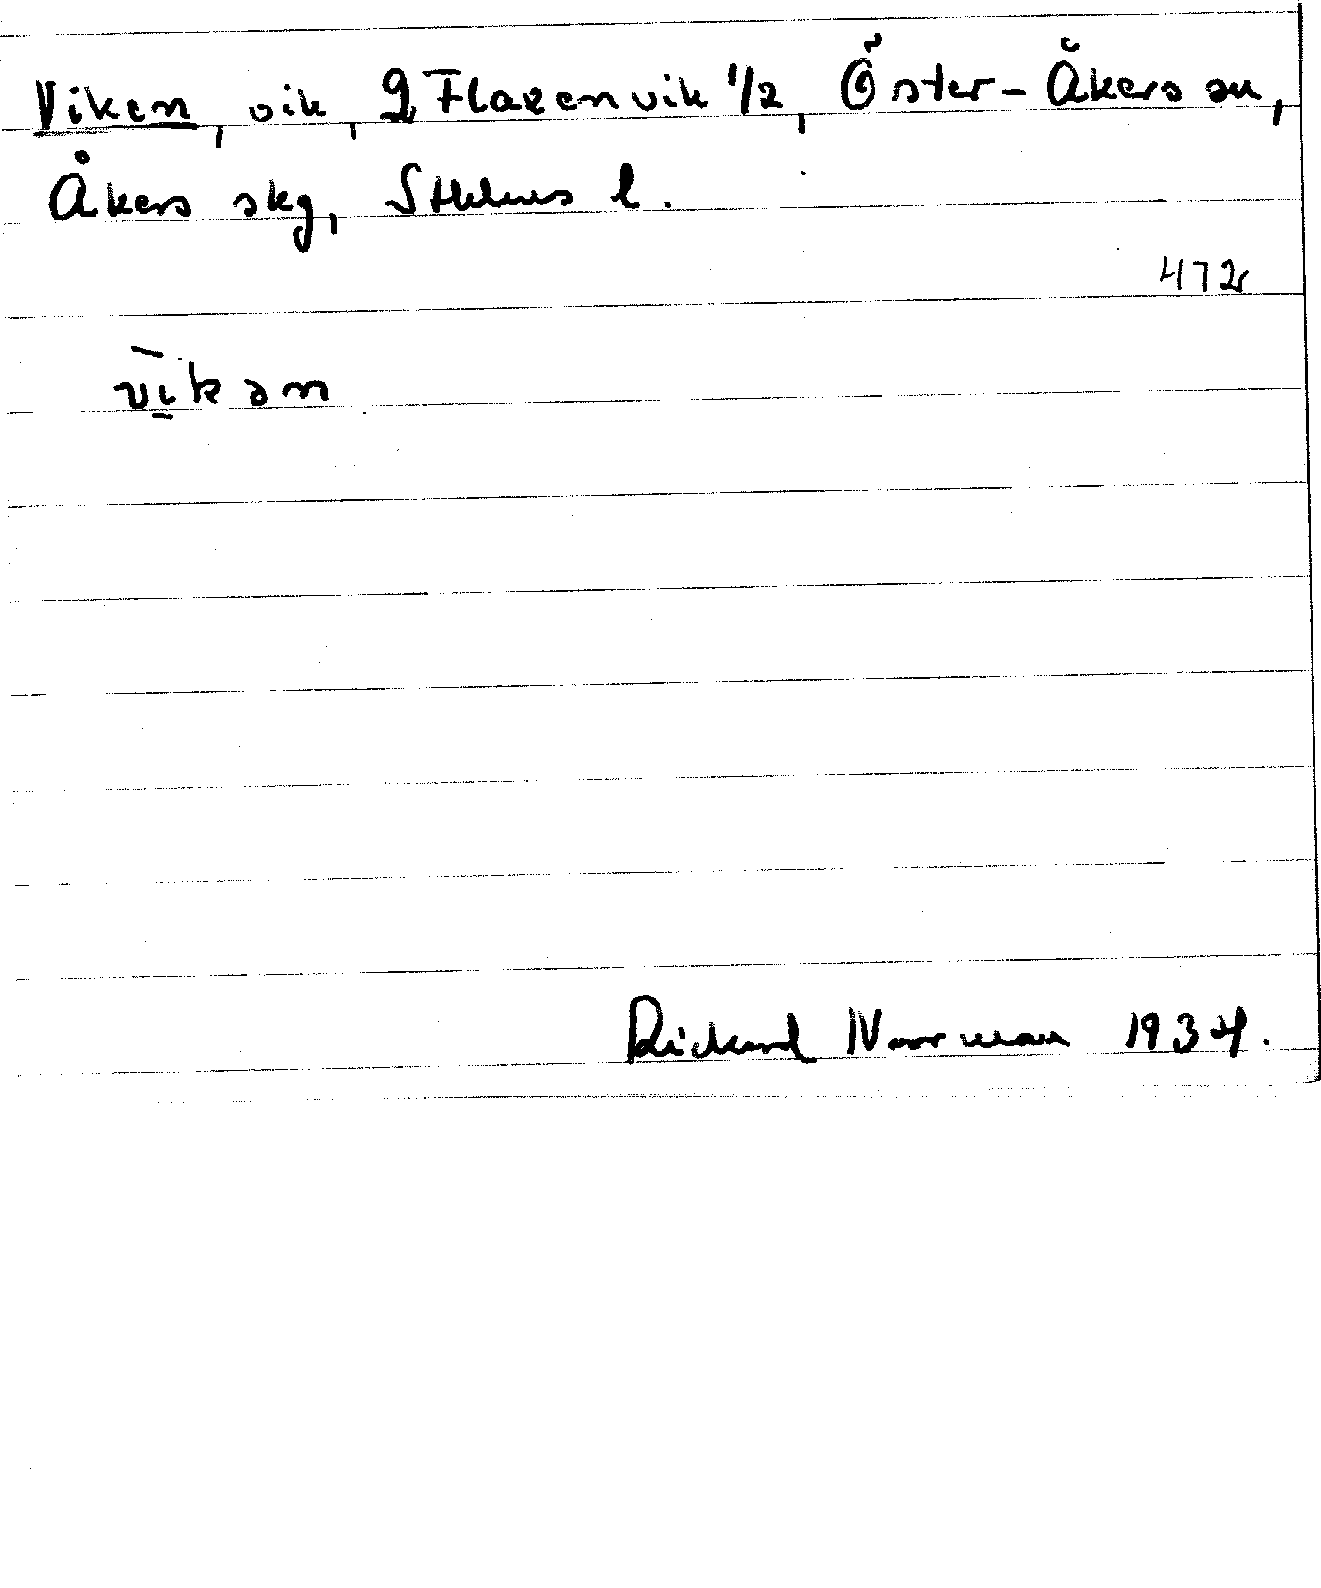 Viken, vik, g Flaxenvik 1/2, Öster-Åkers sn,
Åkers skg, Sthlms l.
472
vīkən
Rickard Norrman 1934.